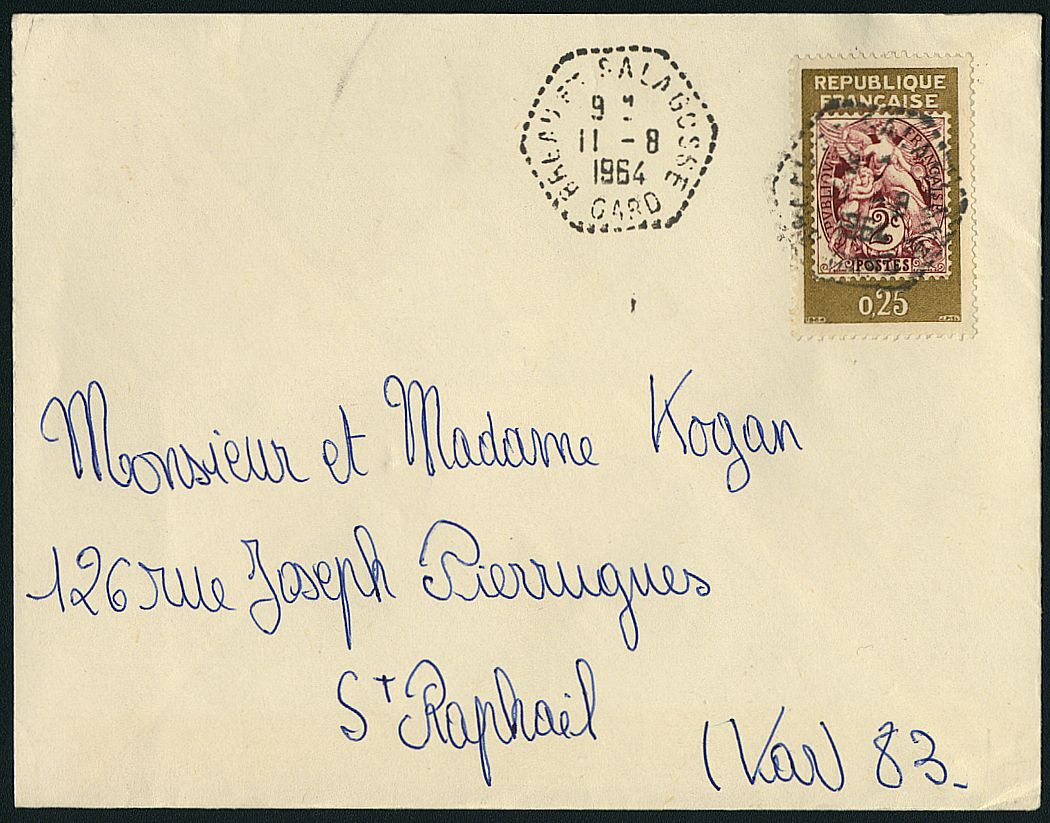 BREAU ET SALAGOSSE
9
11 - 8
1964
GARD
REPUBLIQUE
FRANÇAISE
REPUBLIQUE FRANÇAISE
2c
POSTES
0,25
Monsieur et Madame Kogan
126 rue Joseph Pierrugues
St Raphaël
(Var) 83.